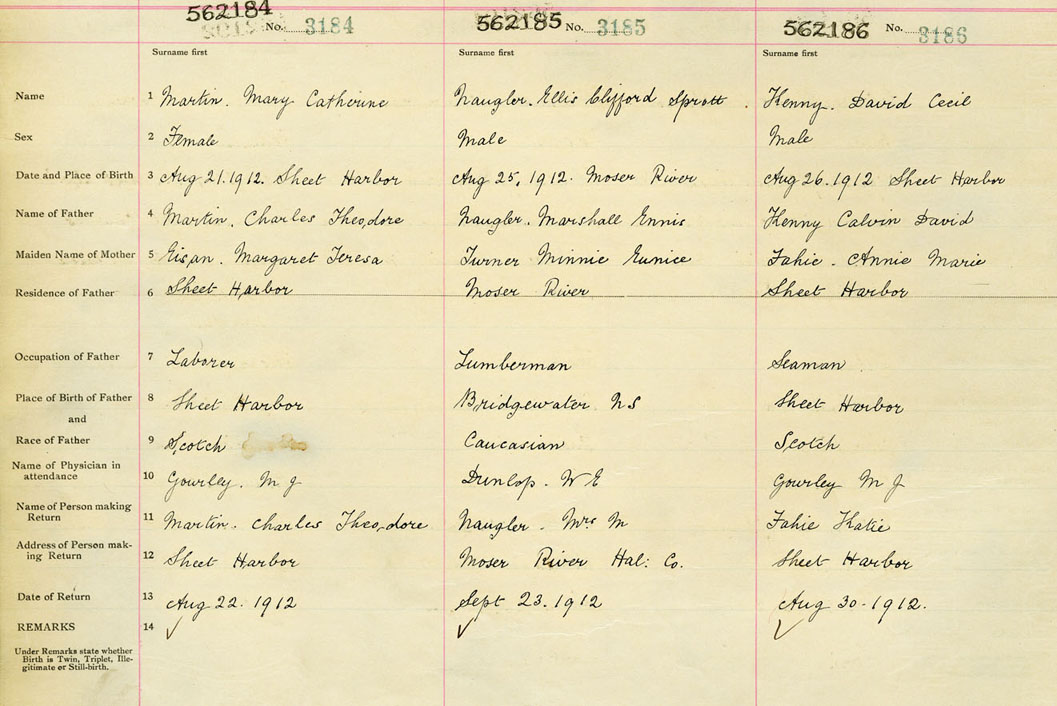 562184 No. 3184 562185 No. 3185 562186 No. 3186
Surname first Surname first Surname first
Name 1 Martin. Mary Catherine Naugler. Ellis Clifford Sprott. Kenny. David Cecil
Sex 2 Female Male Male
Date and Place of Birth 3 Aug 21.1912. Sheet Harbor Aug 25, 1912. Moser River Aug 26.1912 Sheet Harbor
Name of Father 4 Martin. Charles Theodore Naugler. Marshall Ennis Kenny Calvin David
Maiden Name of Mother 5 Eisan. Margaret Teresa Turner Minnie Eunice Fahie. Annie Marie
Residence of Father 6 Sheet Harbor Moser River Sheet Harbor
Occupation of Father 7 Laborer Lumberman Seaman
Place of Birth of Father 8 Sheet Harbor Bridgewater NS Sheet Harbor
and
Race of Father 9 Scotch Caucasian Scotch
Name of Physician in
attendance 10 Gourley. M J Dunlop. W E Gourley M J
Name of Person making
Return 11 Martin. Charles Theodore Naugler. Mrs M Fahie Katie
Address of Person mak-
ing Return 12 Sheet Harbor Moser River Hal: Co. Sheet Harbor
Date of Return 13 Aug 22. 1912 Sept 23.1912 Aug 30-1912.
REMARKS 14 ✓ ✓ ✓
Under Remarks state whether
Birth is Twin, Triplet, Ille-
gitimate or Still-birth.